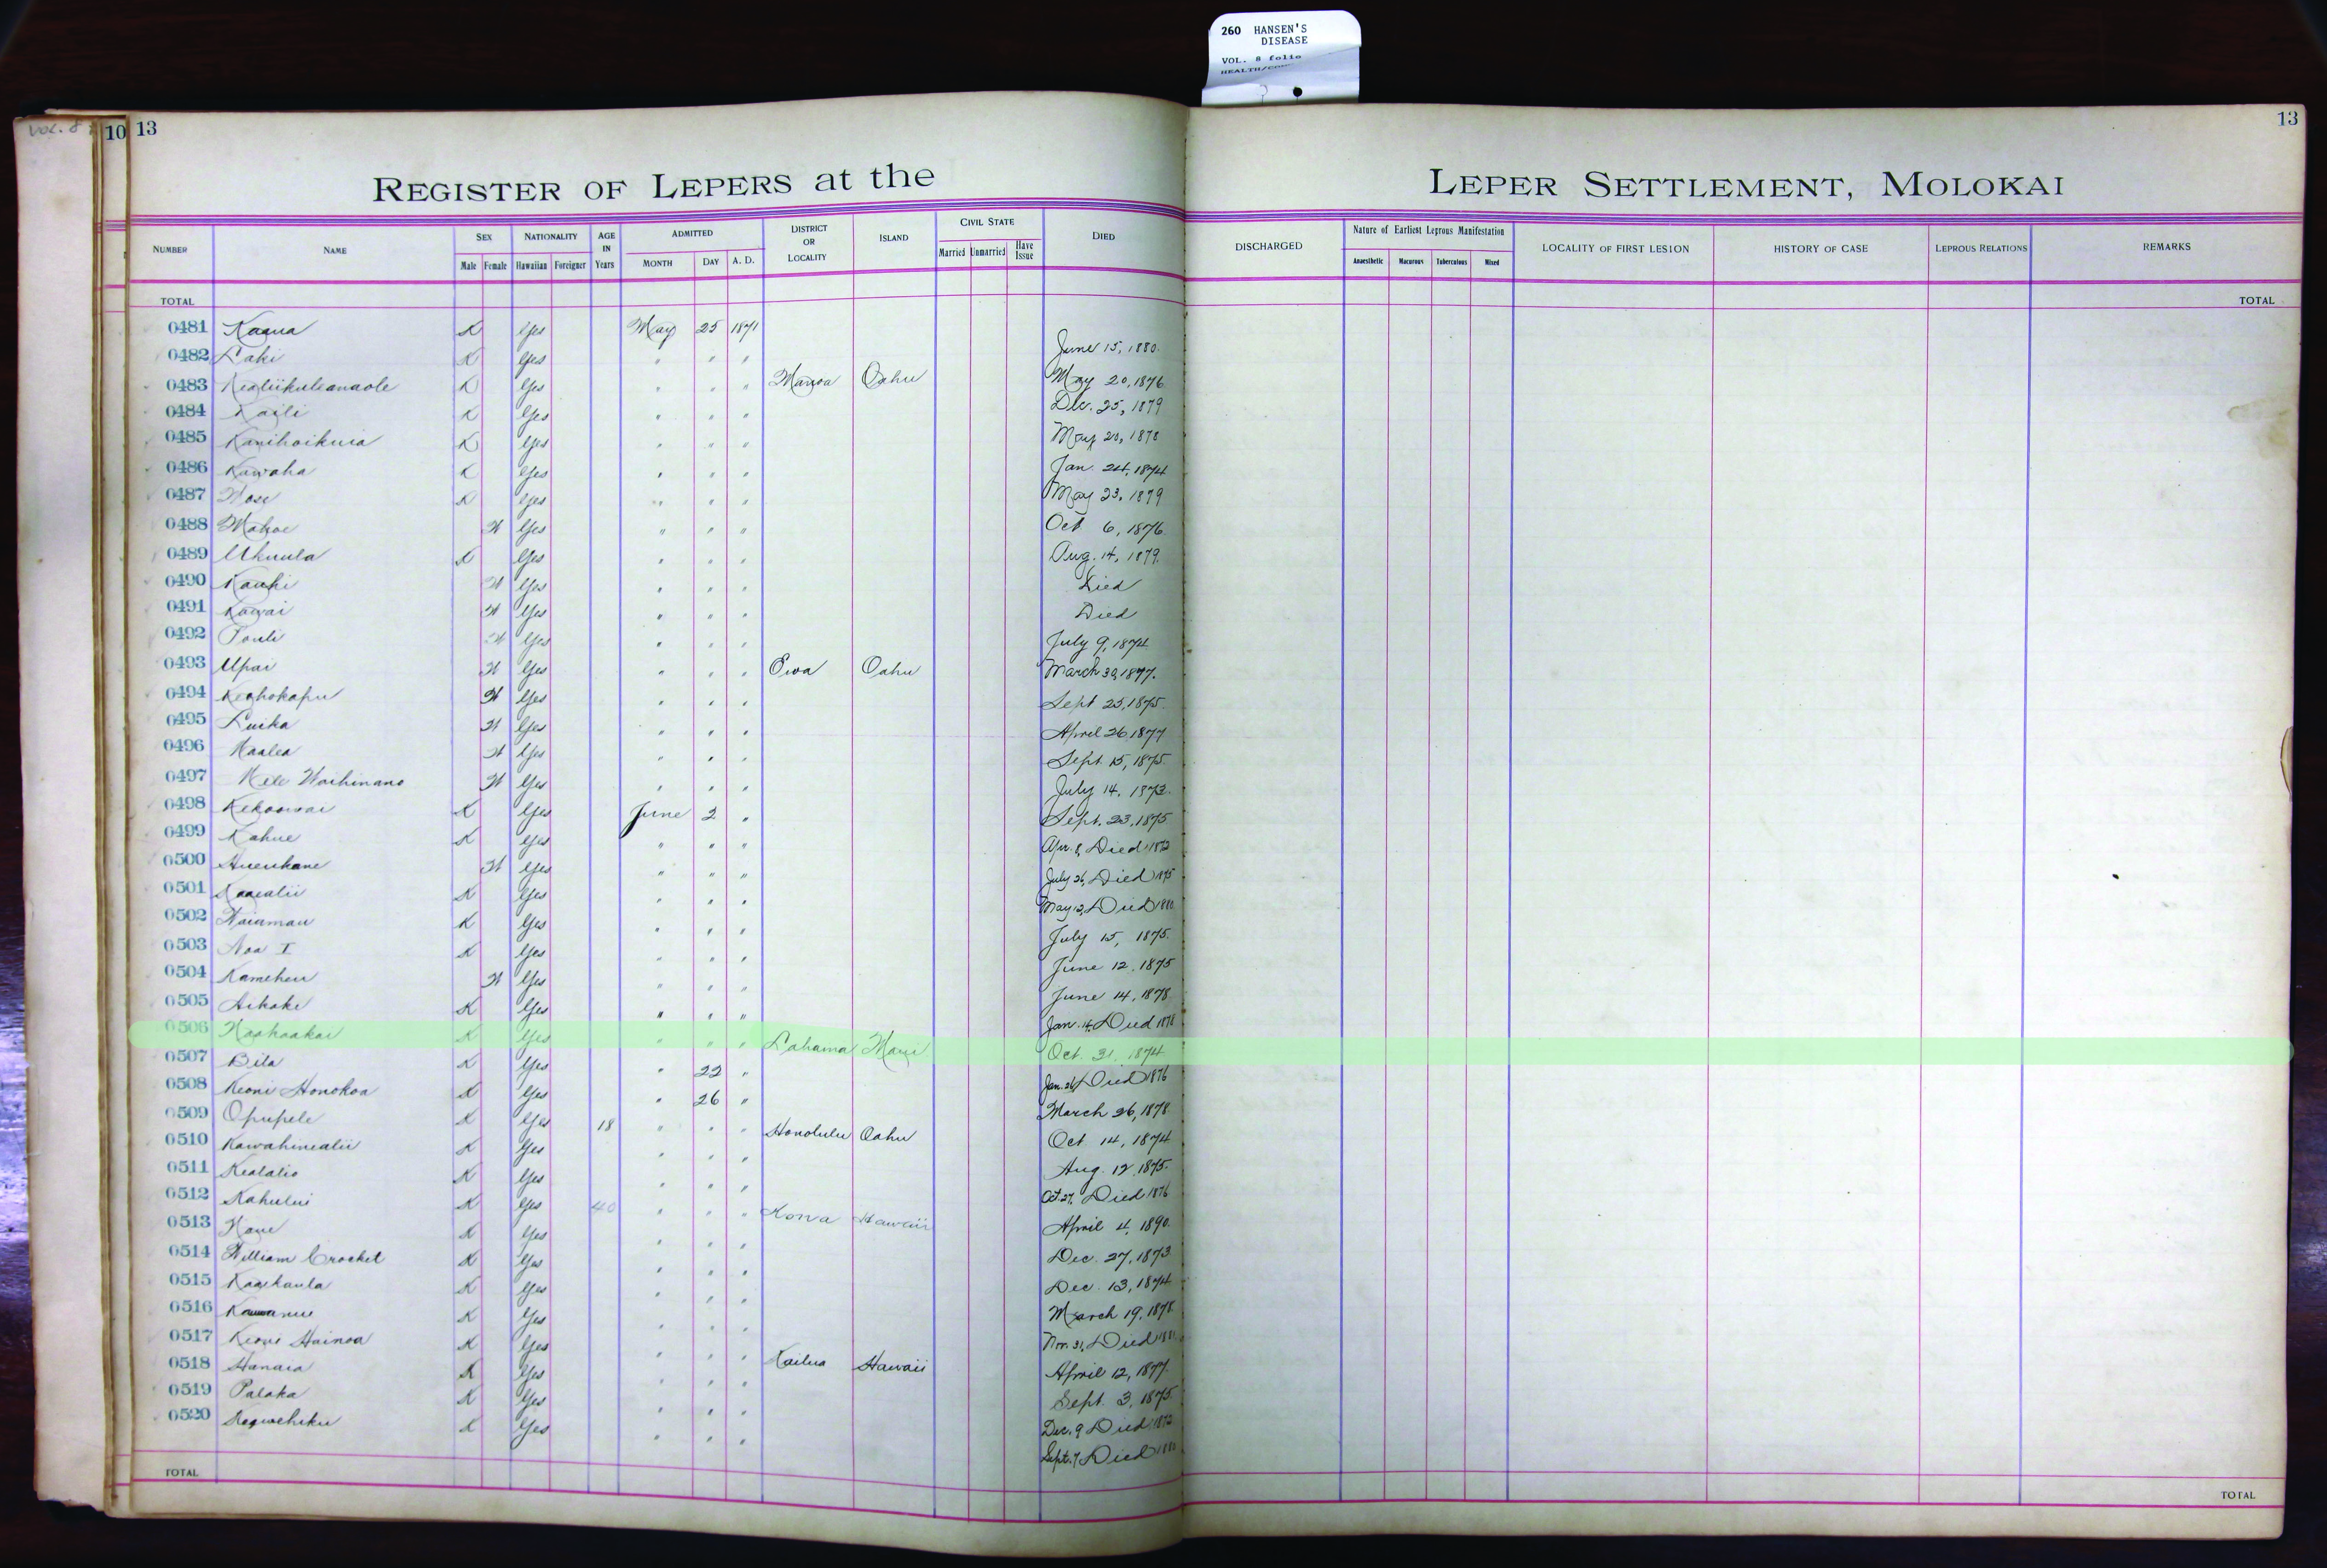 260 HANSEN'S
DISEASE
VOL. 8 folio
VOL. 8
10 13
13
REGISTER OF LEPERS at the LEPER SETTLEMENT, MOLOKAI
NUMBER NAME SEX NATIONALITY AGE IN Years ADMITTED DISTRICT OR LOCALITY ISLAND CIVIL STATE DIED DISCHARGED Nature of Earliest Leprous Manifestation LOCALITY OF FIRST LESION HISTORY OF CASE LEPROUS RELATIONS REMARKS
Male Female Hawaiian Foreigner MONTH DAY A. D. Married Unmarried Have Issue Anaesthetic Macurous Tuberculous Mixed
TOTAL TOTAL
0481 Kaaua K Yes May 25 1871 June 15, 1880.
0482 Laki K Yes " " " May 20, 1876
0483 Kealiikuleanaole K Yes " " " Manoa Oahu Dec. 25, 1879
0484 Kaili K Yes " " " May 20, 1878
0485 Kanihoikuia K Yes " " " Jan. 24, 1874
0486 Kawaha K Yes " " " May 23, 1879
0487 K Yes " " " Oct 6, 1876.
0488 Mahoe W Yes " " " Aug. 14, 1879.
0489 Ukuula K Yes " " " Died
0490 Kauhi W Yes " " " Died
0491 Kawai W Yes " " " July 9, 1874
0492 Pouli W Yes " " " March 30, 1877.
0493 Upai W Yes " " " Ewa Oahu Sept 25, 1875.
0494 Keohokapu W Yes " " " April 26 1877
0495 Luika W Yes " " " Sept. 15, 1875.
0496 Kaalea W Yes " " " July 14, 1873.
0497 Mele Waihinano W Yes " " " Sept. 23, 1875
0498 Kekoowai K Yes June 2 " Apr. 8, Died 1872
0499 Kahue K Yes " " " July 26, Died 1875
0500 W Yes " " " May 12, Died 1880
0501 Kaaealii K Yes " " " July 15, 1875.
0502 Waiamau K Yes " " " June 12, 1875
0503 Noa I K Yes " " " June 14, 1878
0504 Kameheu W Yes " " " Jan. 14, Died 1878
0505 Aikake K Yes " " "
0506 Naahaakai K Yes " " " Lahaina Maui Oct. 31, 1874
0507 Bila K Yes " 22 " Jan. 26, Died 1876
0508 Keoni Honokoa K Yes " 26 " March 26, 1878
0509 Opupele K Yes 18 " " " Honolulu Oahu Oct 14, 1874
0510 Kawahinealii K Yes " " " Aug. 12, 1875.
0511 Kealalio K Yes " " " Oct. 27, Died 1876
0512 Kahului K Yes 40 " " " Kona Hawaii April 4, 1890.
0513 Kane K Yes " " " Dec. 27, 1873
0514 William Crocket K Yes " " " Dec. 13, 1874
0515 Kaaikaula K Yes " " " March 19, 1878
0516 K Yes " " " Nov. 31, Died
0517 Keoni Hainoa K Yes " " " Kailua Hawaii April 12, 1877.
0518 Hanaia K Yes " " " Sept. 3, 1875.
0519 Palaka K Yes " " " Dec. 9 Died 1872
0520 K Yes " " " Sept. 7, Died 1880
TOTAL TOTAL